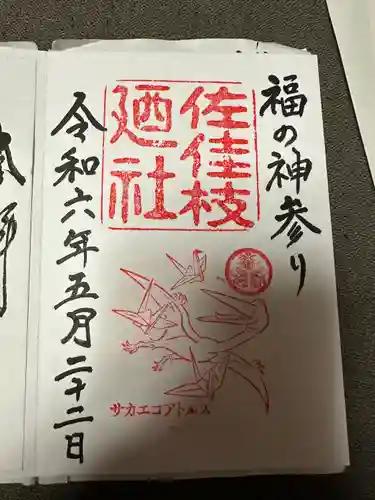 福の神参り
佐佳枝
廼社
サカエコアトルス
令和六年五月二十二日